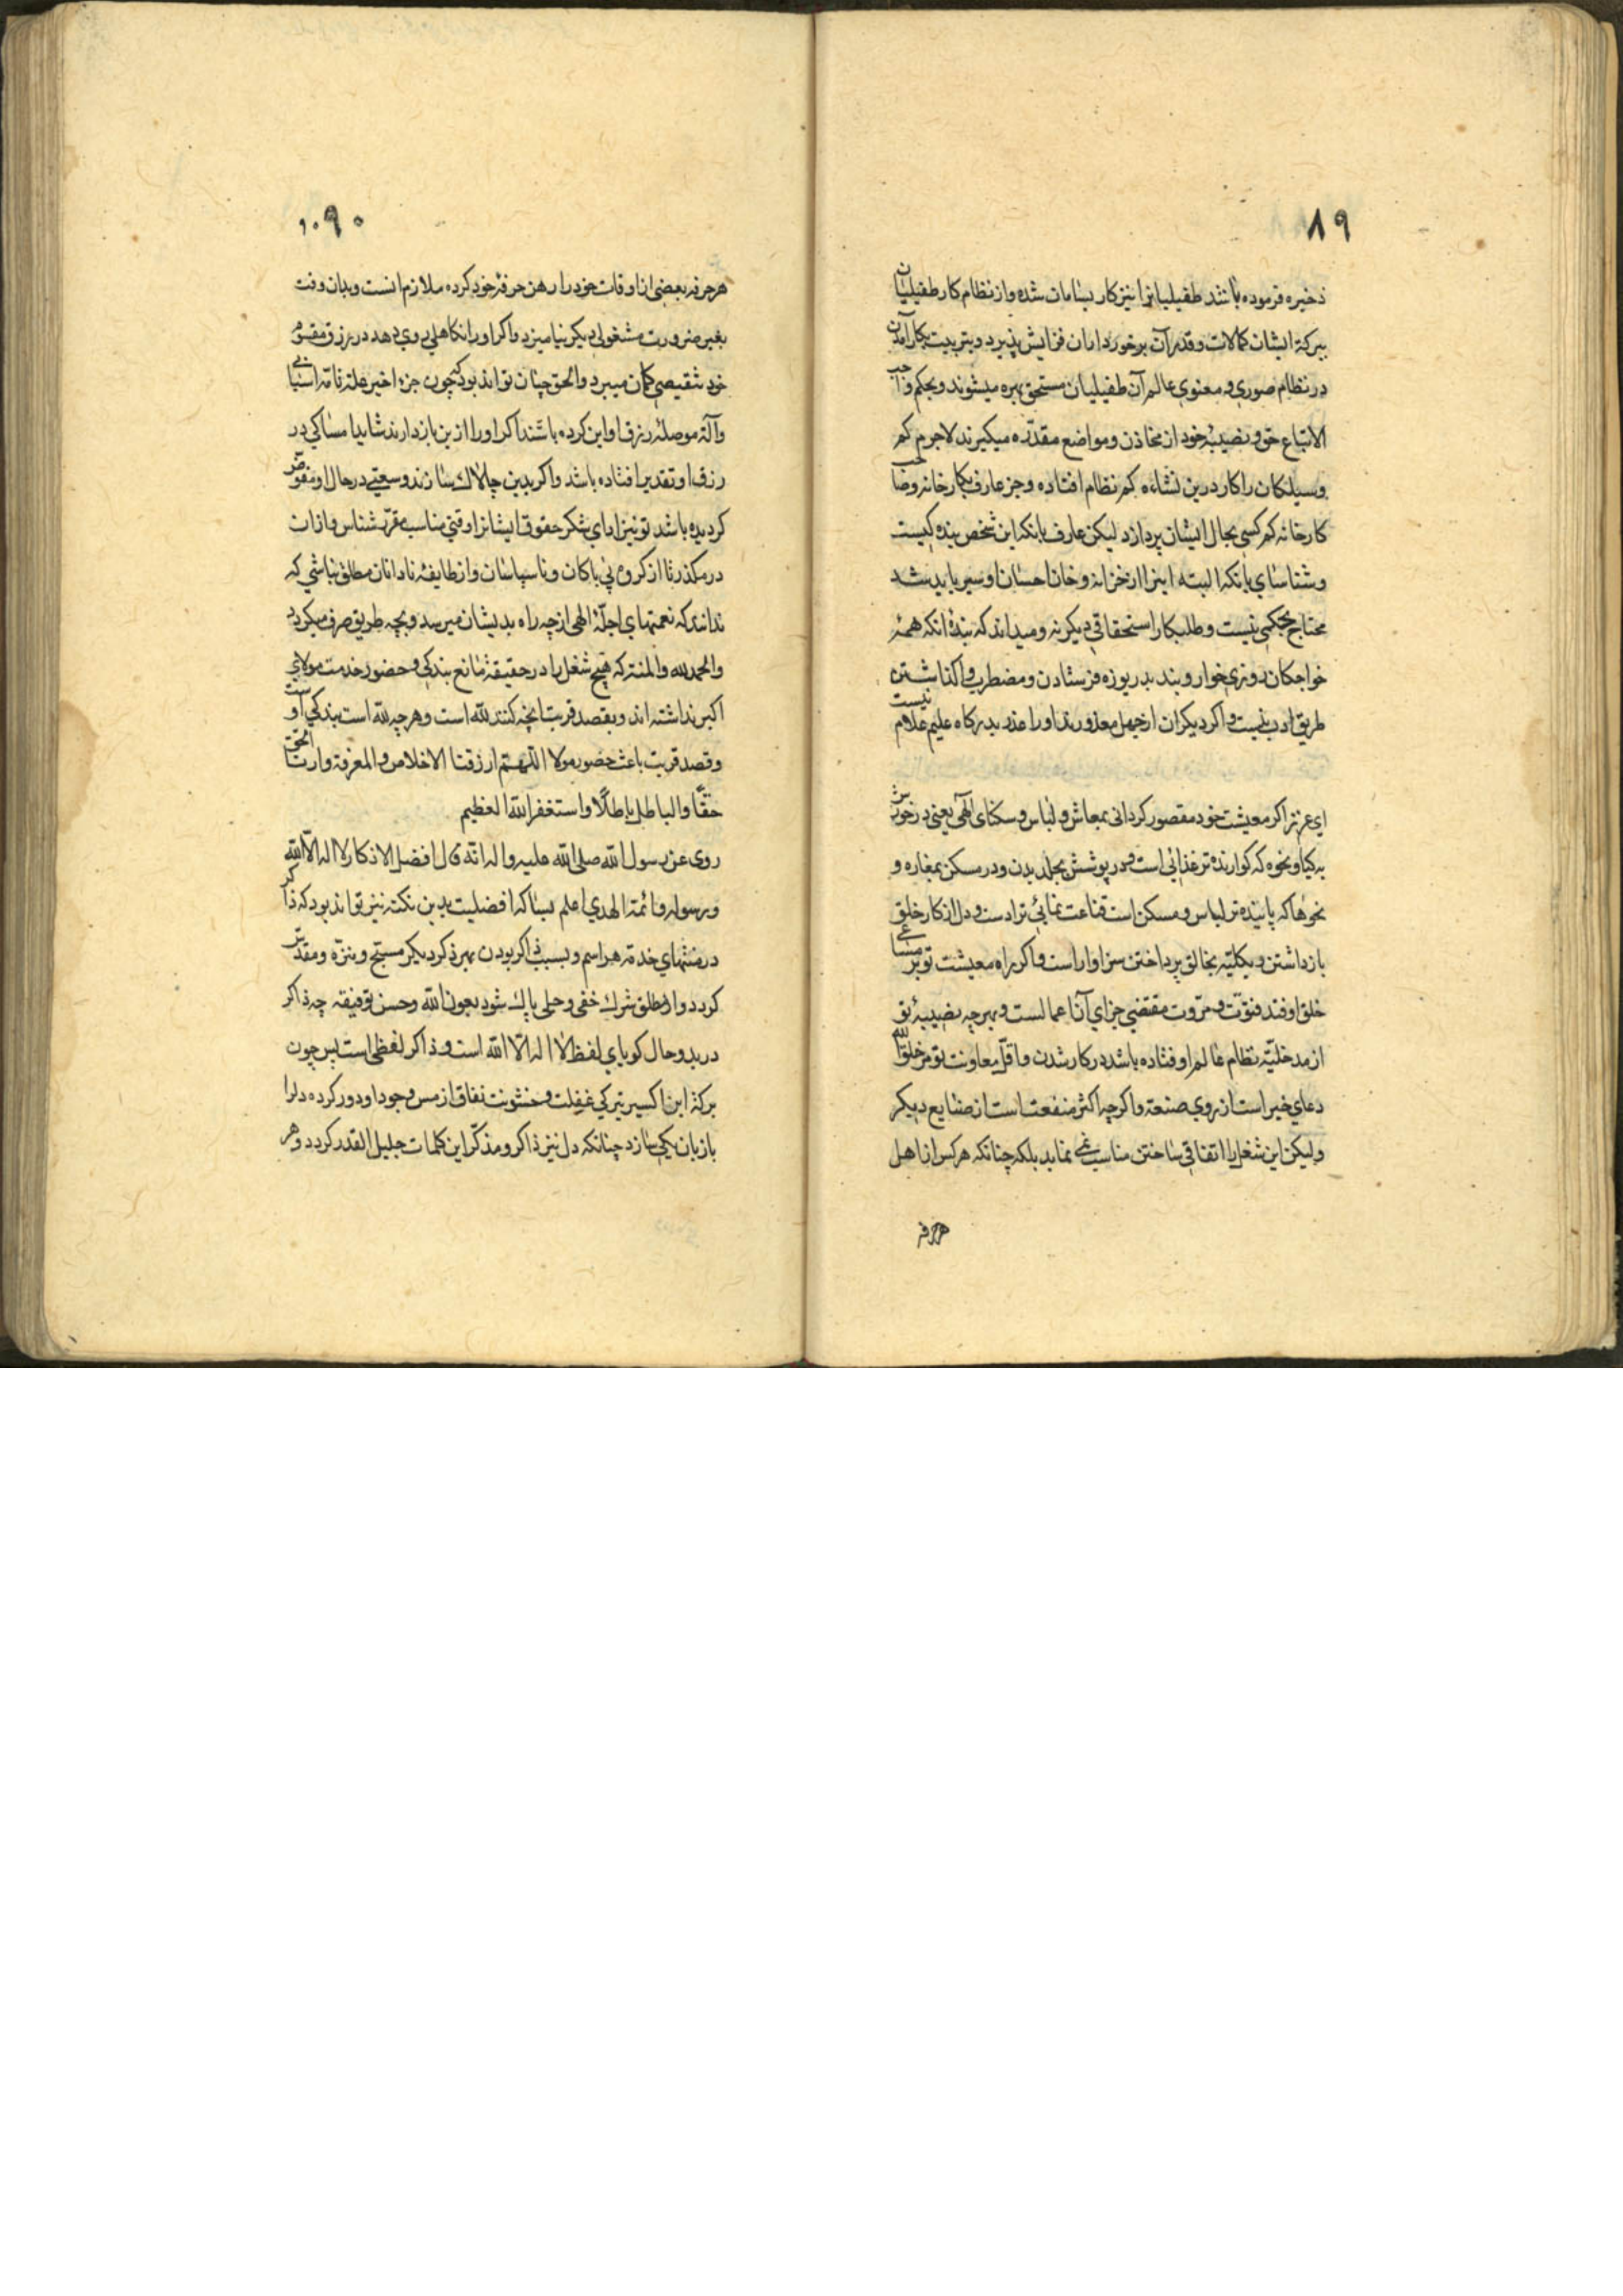 ۸۹
ذخیره فرموده باشد طفیلیانرا نیز کار بسامان شده و از نظام کار طفیلیان
ببرکة ایشان کمالات و قدر آن برخورداران فزایش پذیرد و بتربیت بکار آمدن
در نظام صوری و معنوی عالم آن طفیلیان مستحق بهره میشوند و بحکم واجب
الاتباع حق و نصیبۀ خود از مخازن و مواضع مقدّره میگیرند لاجرم کم
وسیلگان را کار درین نشاءه کم نظام افتاده و جز عارف بکارخانه و صاحب
کارخانه کم کسی بحال ایشان پردازد لیکن عارف بانکه این شخص بنده کیست
و شناسای بانکه البته اینرا از خزانه و خان احسان او سیر باید شد
محتاج بحکمی نیست و طلبکار استحقاقی دیگر نه و میداند که بندۀ انکه همۀ
خواجکان روزی خوار ویند بدریوزه فرستادن و مضطرب واگذاشتن
طریق ادب نیست و اگر دیگران از جهل معذورند او را عذر بدرگاه علیم علام نیست
ای عزیز اگر معیشت خود مقصور گردانی بمعاش و لباس و سکنای الهی یعنی در خورش
به گیاه و نحوه که گوارنده تر غذائی است و در پوشش بجلد بدن و در مسکن بمغاره و
نحوها که پاینده تر لباس و مسکن است قناعت نمائی ترا دست و دل از کار خلق
بازداشتن و بکلیّه بخالق پرداختن سزاوار است و اگر راه معیشت تو بر مساعی
خلق اوفتد فتوّت و مروّت مقتضی جزای آن اعمالست و بهرچه نصیبۀ تو
از مدخلیّه نظام عالم اوفتاده باشد در کار شدن و اقلّ معاونت تو مر خلق الله
دعای خیر است از روی صنعة و اگرچه اکثر منفعت است از صنایع دیگر
ولیکن این شغل را اتفاقی ساختن مناسب نمی نماید بلکه چنانکه هر کس از اهل
هر حرفه
۰۹۰
هر حرفه بعضی از اوقات خود را رهن حرفۀ خود کرده ملازم انست و بدان وقت
بغیر ضرورت مشغولی دیگر نیامیزد و اگر او را نکاهلی روی دهد در رزق مقسوم
خود تنقیصی گمان میبرد والحق چنان تواند بود که چون جزء اخیر علة تامّه اسبابی
و آلة موصلۀ رزق او این کرده باشند اگر او را ازین بازدارند شاید امساکی در
رزق او تقدیر افتاده باشد و اگر بدین چالاک سازند وسعتی در حال او مقرّر
گردیده باشد تو نیز ادای شکر حقوق ایشانرا وقتی مناسب مقرّر شناس و از ان
در مگذر تا از گروه بی باکان و ناسپاسان و از طایفۀ نادانان مطلق نباشی که
ندانند که نعمتهای اجلّۀ الهی از چه راه بدیشان میرسد و بچه طریق صرف میگردد
والحمد لله والمنّة که هیچ شغل را در حقیقة مانع بندگی و حضور خدمت مولای
اکبر نداشته اند و بقصد قربت آنچه کنند لله است و هر چه لله است بندگی اوست
و قصد قربت باعث حضور مولا اللّهمّ ارزقنا الاخلاص والمعرفة وارنا الحق
حقّا والباطل باطلًا واستغفر الله العظیم
روی عن رسول الله صلی الله علیه واله انّه قال افضل الاذکار لا اله الّا الله
و رسوله وائمّة الهدی اعلم بسا که افضلیت بدین نکته نیز تواند بود که ذاکر
در منتهای خدمة هر اسم و بسبب ذاکر بودن بهر ذکر دیگر مسبّح و منزّه و مقدّس
گردد و از مطلق شرک خفی و جلی پاک شود بعون الله وحسن توفیقه چه ذاکر
در بدو حال گویای لفظ لا اله الّا الله است و ذاکر لفظی است پس چون
برکة این اکسیر تیرگی غفلت و خشونت نفاق از مس وجود او دور کرده دلرا
با زبان یکی سازد چنانکه دل نیز ذاکر و مذکّر این کلمات جلیل القدر گردد و هر